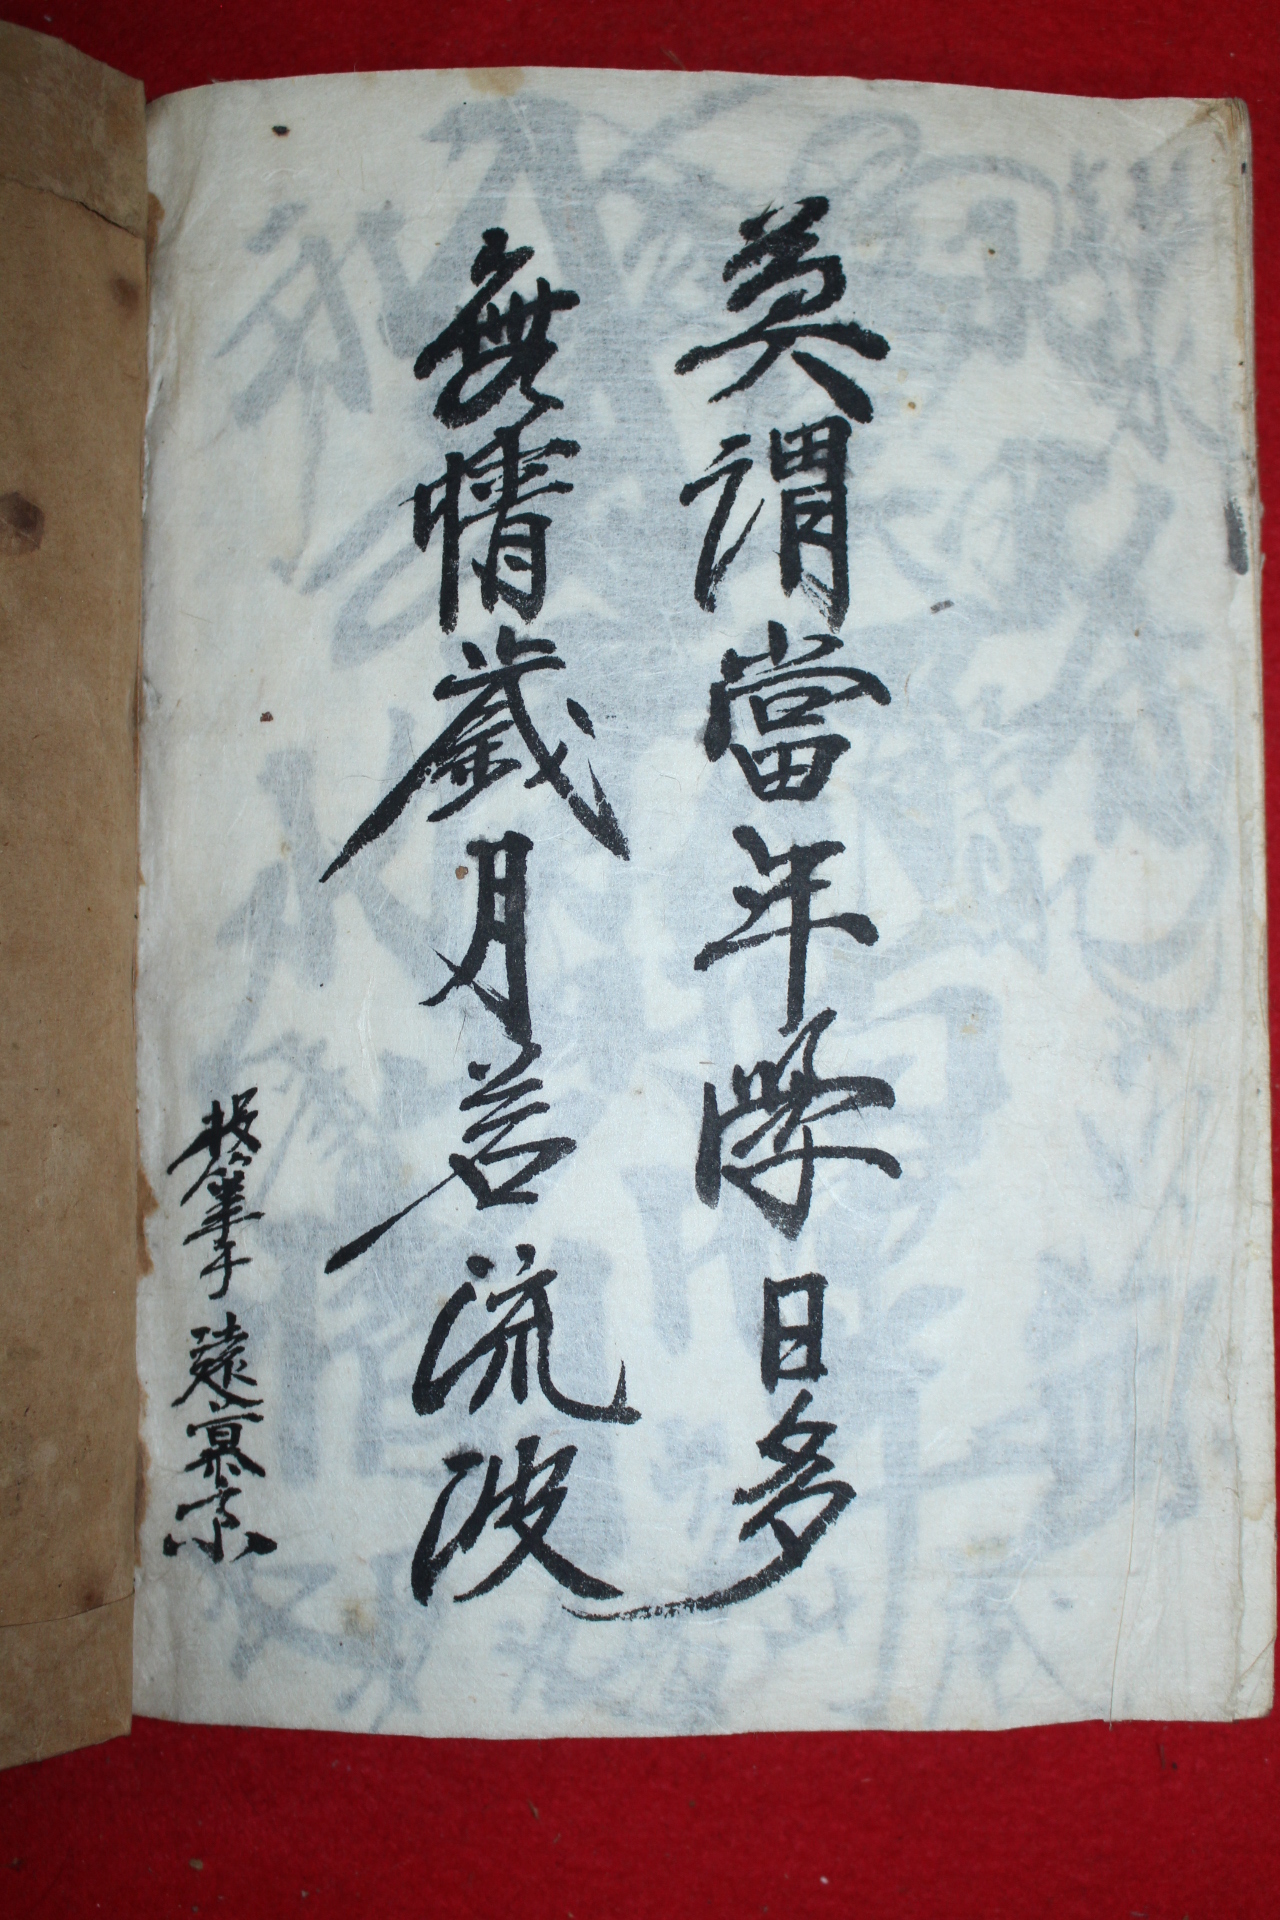 莫謂當年學日多
無情歲月若流波
投筆于遠慕宗